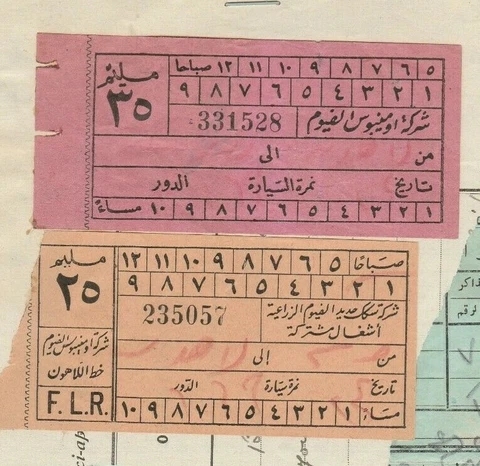 مليم
٣٥
٥ ٦ ٧ ٨ ٩ ١٠ ١١ ١٢ صباحا
١ ٢ ٣ ٤ ٥ ٦ ٧ ٨ ٩
شركة اومنيبوس الفيوم 331528
من الى
تاريخ نمرة السيارة الدور
١ ٢ ٣ ٤ ٥ ٦ ٧ ٨ ٩ ١٠ مساءً
مليم
٢٥
شركة اومنيبوس الفيوم
خط اللاهون
F.L.R.
صباحًا ٥ ٦ ٧ ٨ ٩ ١٠ ١١ ١٢
١ ٢ ٣ ٤ ٥ ٦ ٧ ٨ ٩
شركة سكك حديد الفيوم الزراعية
أشغال مشتركة
235057
من إلى
تاريخ نمرة سيارة الدور
مساءً ١ ٢ ٣ ٤ ٥ ٦ ٧ ٨ ٩ ١٠